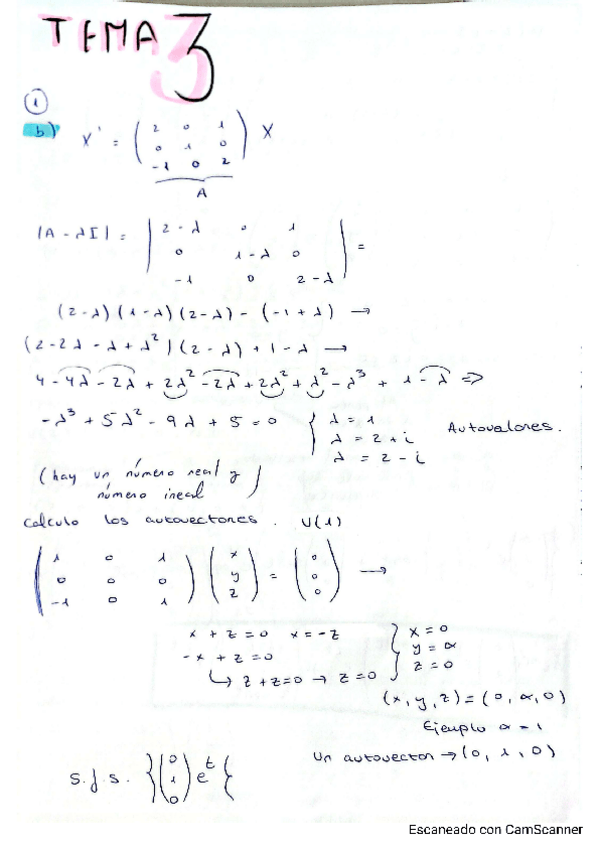 TEMA 3
1
b) X' = ( 2 0 1
0 1 0
-1 0 2 ) X
A
|A - λI| = | 2 - λ 0 1
0 1 - λ 0
-1 0 2 - λ | =
(2 - λ) (1 - λ) (2 - λ) - (-1 + λ) →
(2 - 2λ - λ + λ²) (2 - λ) + 1 - λ →
4 - 4λ - 2λ + 2λ² - 2λ + 2λ² + λ² - λ³ + 1 - λ ⇒
-λ³ + 5λ² - 9λ + 5 = 0 { λ = 1
λ = 2 + i
λ = 2 - i Autovalores.
(hay un número real y
número ireal)
Calculo los autovectores. V(1)
( 1 0 1
0 0 0
-1 0 1 ) ( x
y
z ) = ( 0
0
0 ) →
x + z = 0 x = -z
-x + z = 0
↳ z + z = 0 → z = 0
} x = 0
y = α
z = 0
(x, y, z) = (0, α, 0)
Ejemplo α = 1
Un autovector → (0, 1, 0)
S.f.s. } ( 0
1
0 ) e^t {
Escaneado con CamScanner